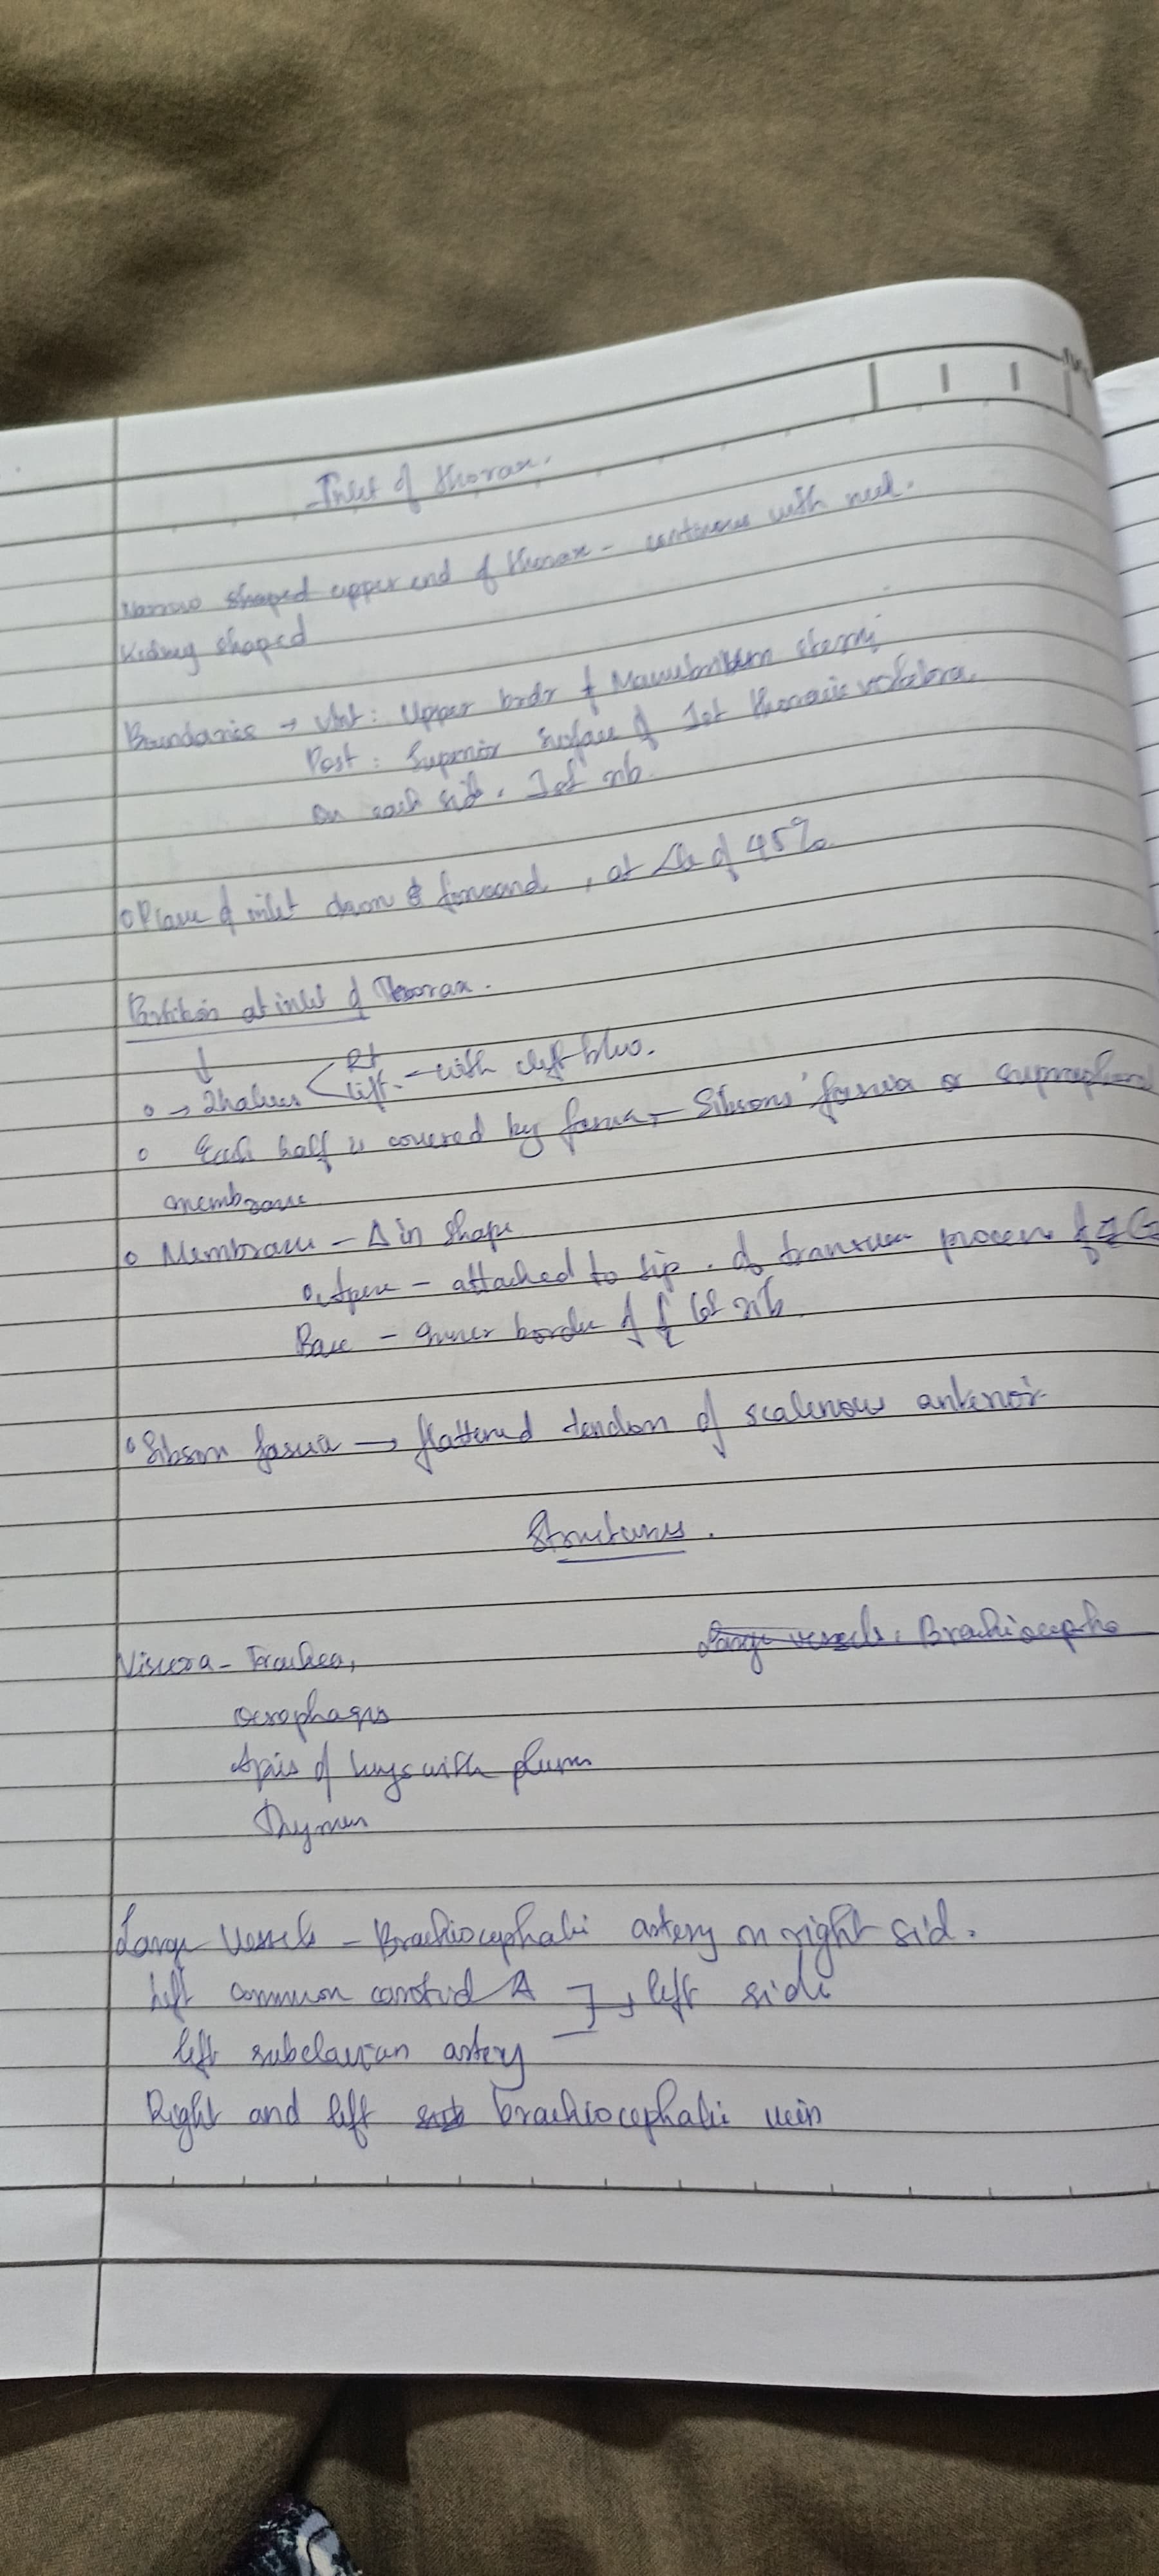 Inlet of thorax.
Narrow shaped upper end of thorax - continuous with neck.
Kidney shaped
Boundaries → Ant: Upper bordr of Manubrium sterni
Post: Superior surface of 1st thoracic vertebra.
On each side, 1st rib.
Plane of inlet down & forward, at of 45%
Partition at inlet of Thorax.
↓ Rt
→ 2halves < left - with cleft btw.
Each half is covered by fascia, - Sibsons' fascia or
membrane
Membrane - Δ in shape
Apex - attached to tip. of transverse process of
Base - Inner border of 1st rib.
Sibson fascia → flattened tendon of scalenous anterior
Structures.
Viscera - Trachea,
Large vessels: Brachiocepha
oesophagus
Apis of lungs with pleura
Thymus
Large Vessels - Brachiocephalic artery on right sid.
left common carotid A
left side
left subclavian artery
Right and left brachiocephalic vein